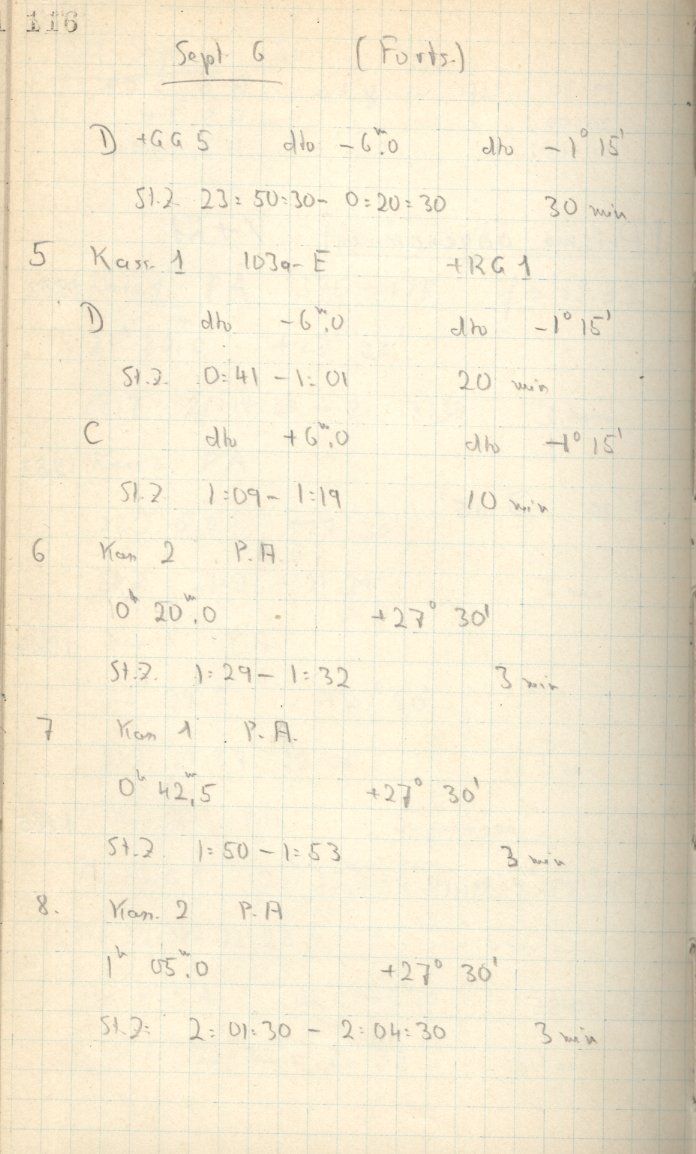 116
Sept 6 (Forts.)
D +GG 5 dto -6ᵐ.0 dto -1° 15'
St.Z. 23:50:30 - 0:20:30 30 min
5 Kass. 1 103a-E +RG 1
D dto -6ᵐ.0 dto -1° 15'
St.Z. 0:41 - 1:01 20 min
C dto +6ᵐ.0 dto -1° 15'
St.Z 1:09 - 1:19 10 min
6 Kass 2 P.A
0ʰ 20ᵐ.0 +27° 30'
St.Z. 1:29 - 1:32 3 min
7 Kass 1 P.A.
0ʰ 42ᵐ,5 +27° 30'
St.Z 1:50 - 1:53 3 min
8. Kass. 2 P.A
1ʰ 05ᵐ.0 +27° 30'
St.Z: 2:01:30 - 2:04:30 3 min